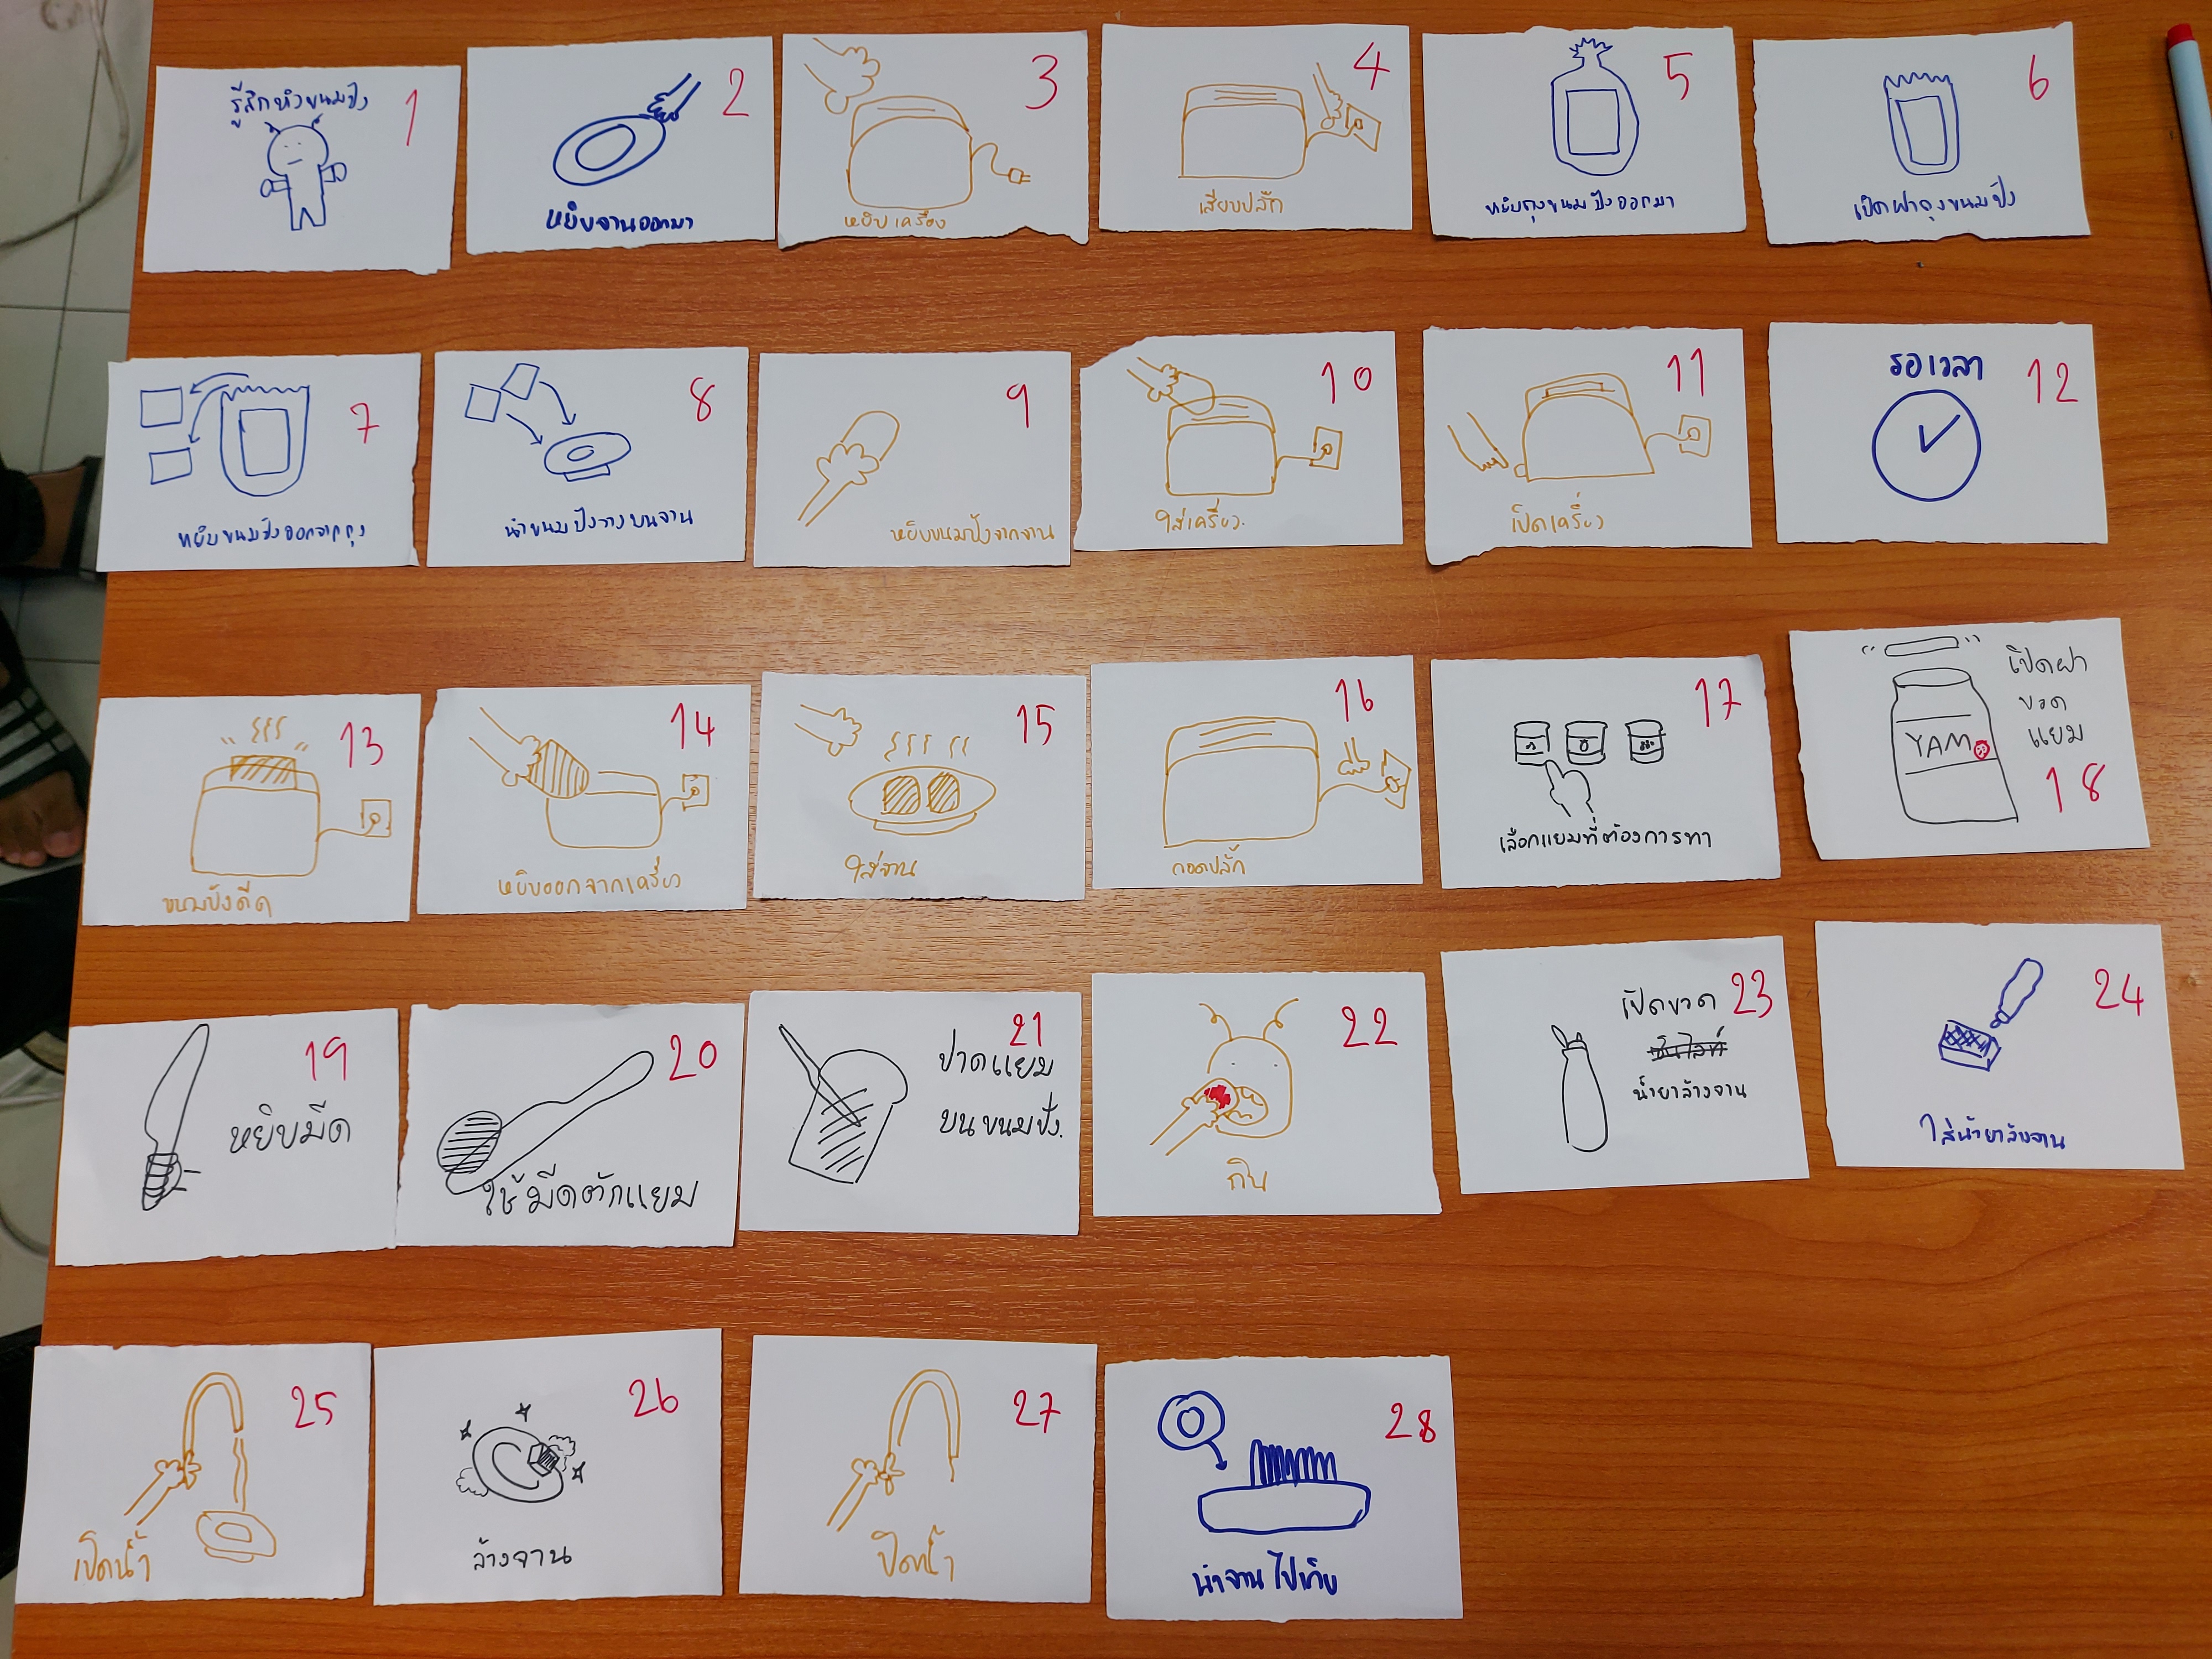 1
รู้สึกหิวขนมปัง
2
หยิบจานออกมา
3
หยิบเครื่อง
4
เสียบปลั๊ก
5
หยิบถุงขนมปังออกมา
6
เปิดฝาถุงขนมปัง
7
หยิบขนมปังออกจากถุง
8
นำขนมปังวางบนจาน
9
หยิบขนมปังจากจาน
10
ใส่เครื่อง.
11
เปิดเครื่อง
12
รอเวลา
13
ขนมปังดีด
14
หยิบออกจากเครื่อง
15
ใส่จาน
16
ถอดปลั๊ก
17
เลือกแยมที่ต้องการทา
เปิดฝา
ขวด
แยม
18
YAM
19
หยิบมีด
20
ใช้มีดตักแยม
21
ปาดแยม
บนขนมปัง.
22
กิน
เปิดขวด 23
น้ำยาล้างจาน
24
ใส่น้ำยาล้างจาน
25
เปิดน้ำ
26
ล้างจาน
27
ปิดน้ำ
28
นำจานไปเก็บ